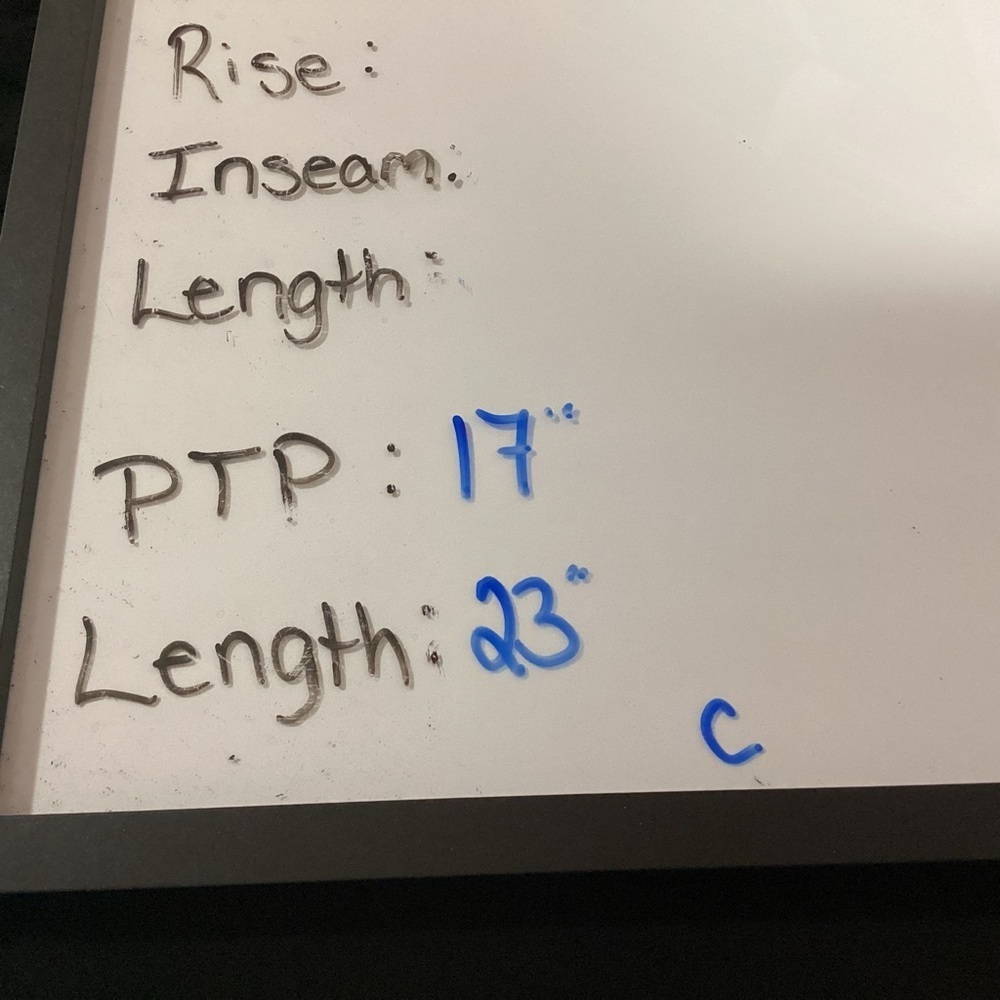 Rise:
Inseam:
Length:
PTP: 17"
Length: 23"
C